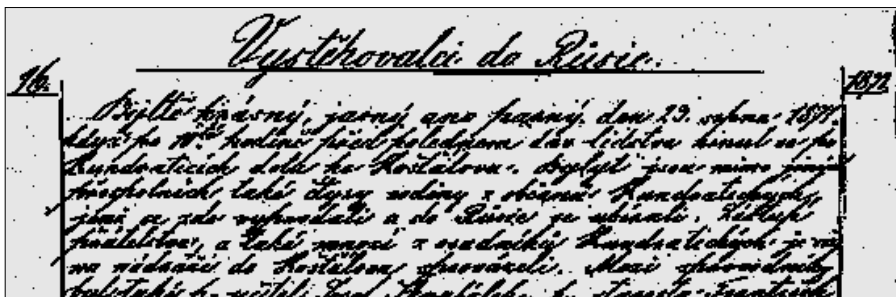 Vystěhovalci do Rusie.
16. 1871.
Bylť krásný, jasný ano parný den 23. srpna 1871.
když po 10té hodině před polednem dav lidstva hnul se po
Kundraticích dolů ke Košťálovu. Byly jsou mimo jiné
také čtyry rodiny z občanů Kundratických,
jenž se zde vyprodali a do Rusie se ubírali. Zástup
přátelstva, a také mnozí z osadníků Kundratických je
na nádraží do Košťálova sprovázeli. Mezi sprovodníky
byl také p. učitel Josef p. starosta František